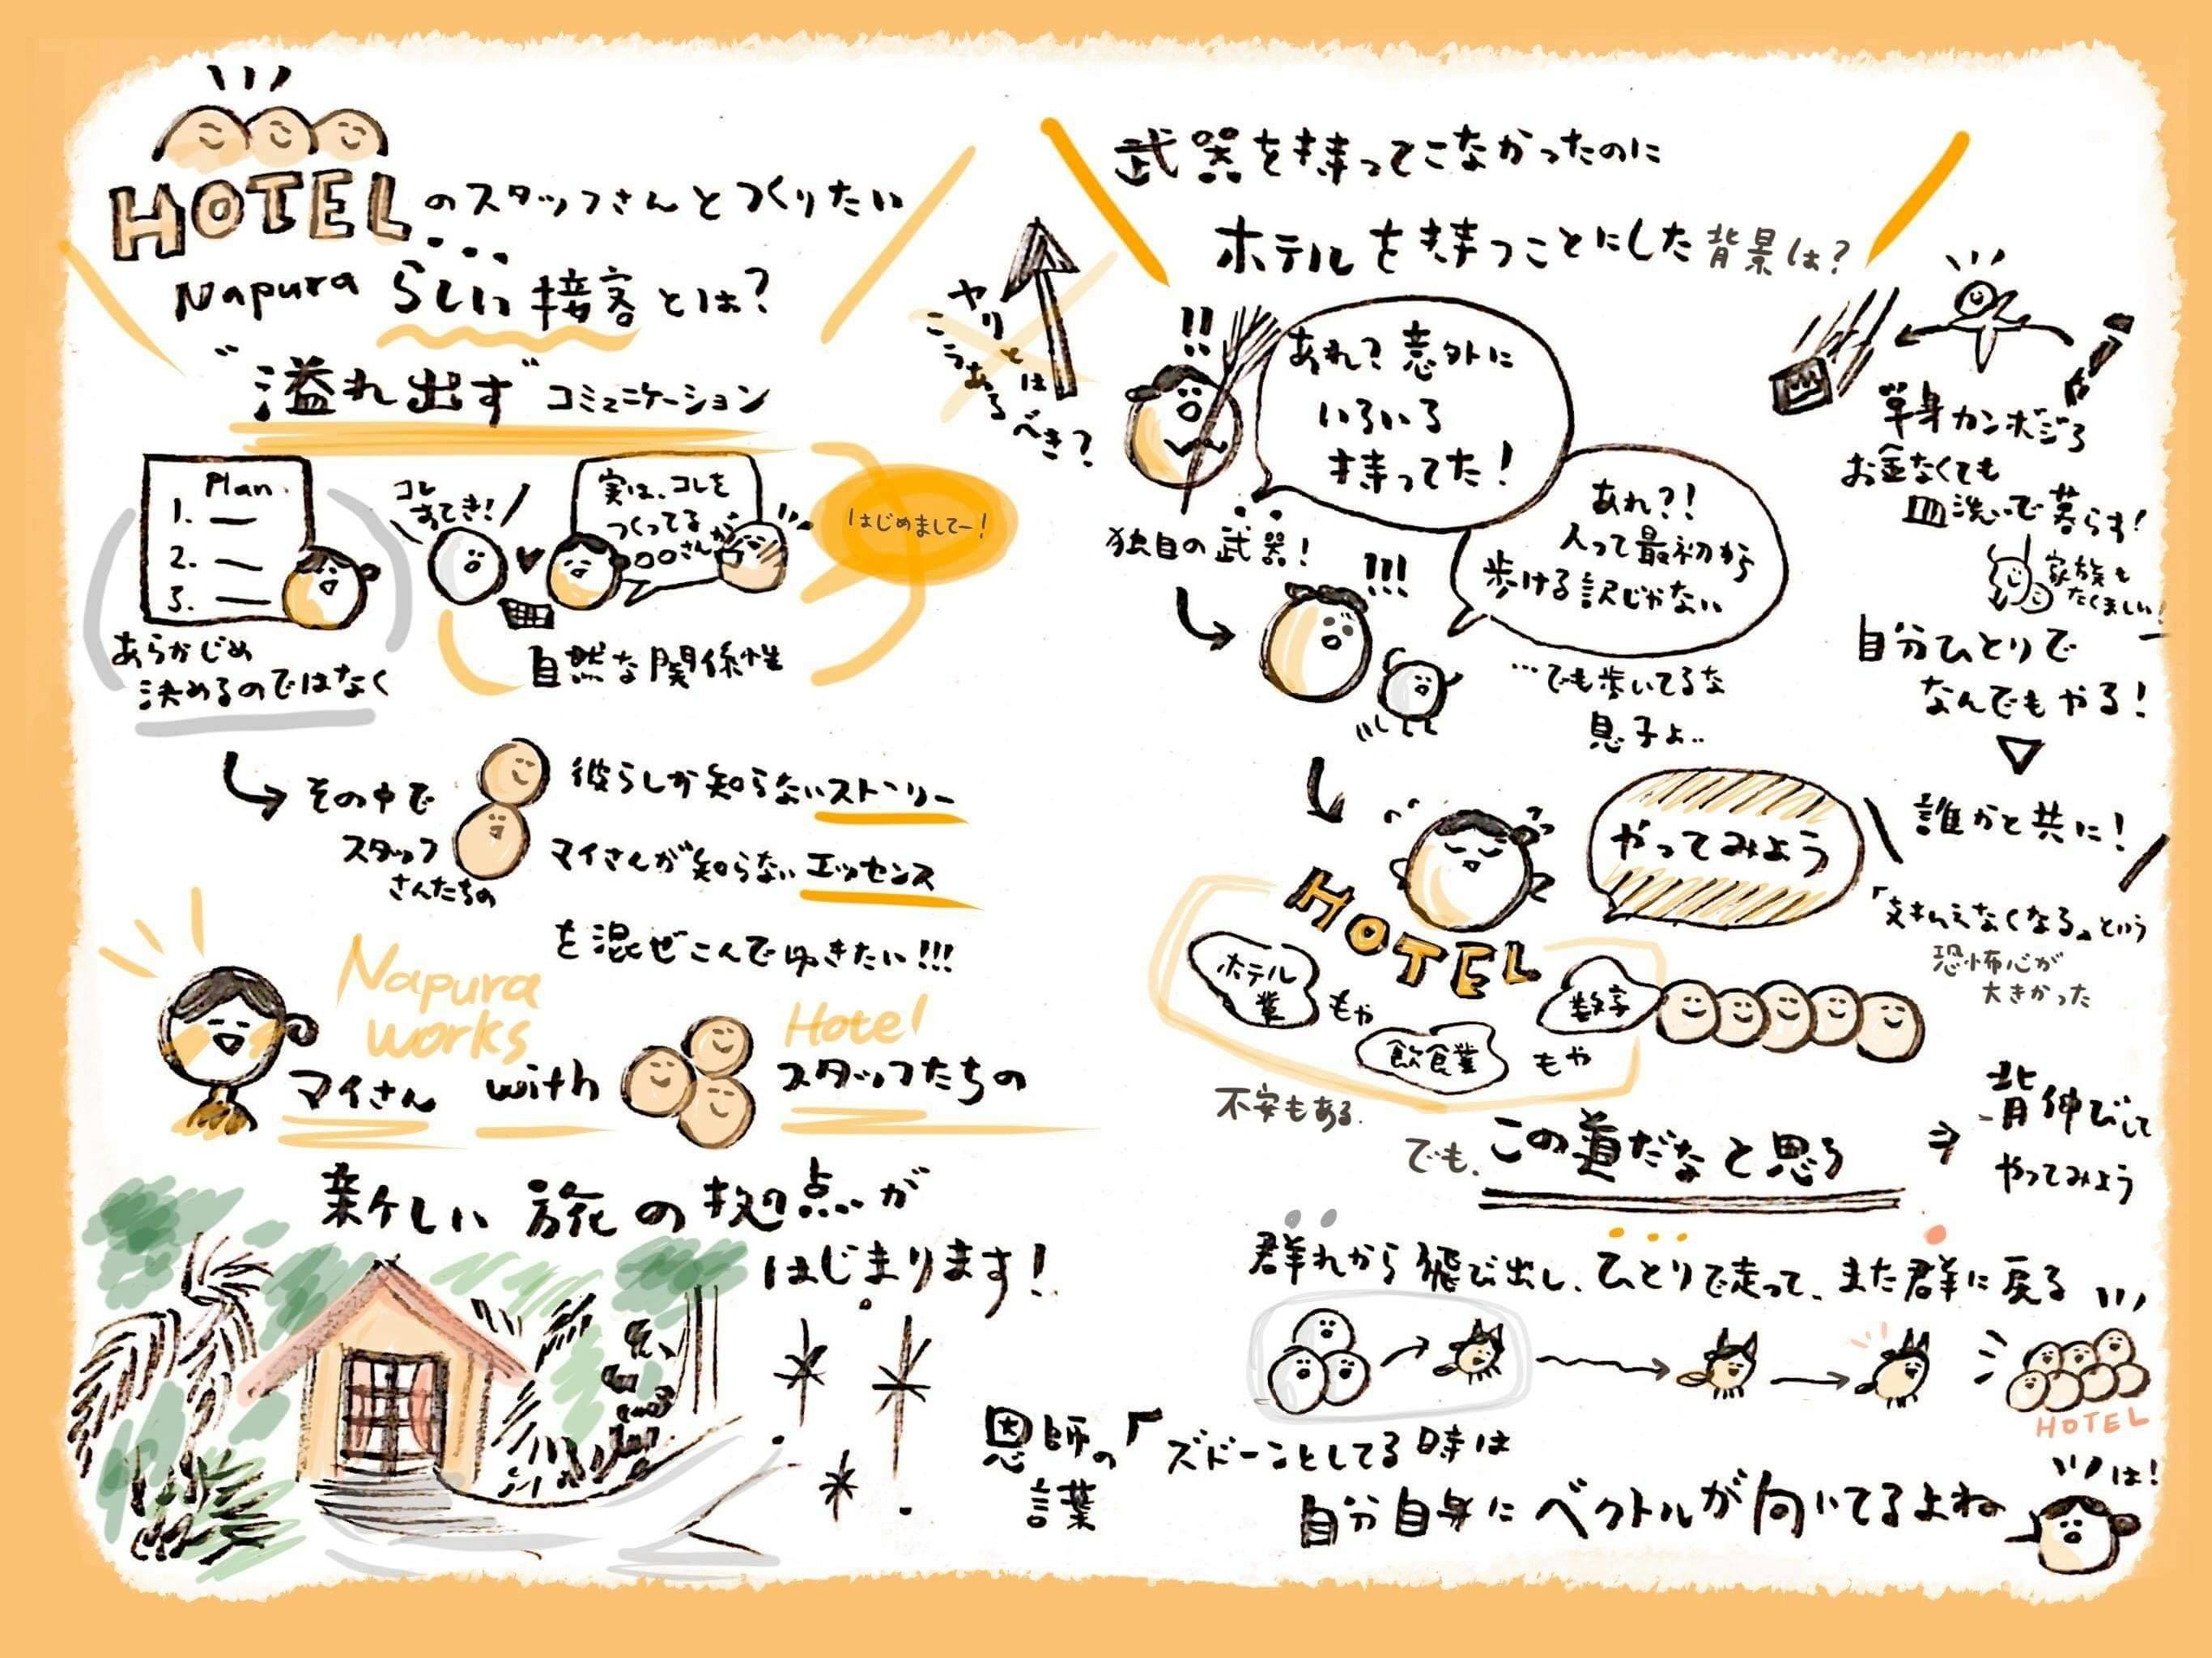 HOTELのスタッフさんとつくりたい
Napura らしい接客とは?
"溢れ出す"コミュニケーション
Plan.
1.
2.
3.
あらかじめ
決めるのではなく
コレ
すてき!
実は、コレを
つくってる
〇〇さんが
はじめましてー!
自然な関係性
その中で
スタッフ
さんたちの
彼らしか知らないストーリー
マイさんが知らないエッセンス
を混ぜこんでゆきたい!!!
Napura
works
Hotel
マイさん with スタッフたちの
新しい 旅の拠点が
はじまります!
武器を持ってこなかったのに
ホテルを持つことにした背景は?
ヤリとは
こうあるべき?
!!
あれ?意外に
いろいろ
持ってた!
独自の武器!
!!!
あれ?!
人って最初から
歩ける訳じゃない
…でも歩いてるな
息子よ..
単身カンボジア
お金なくても
皿洗いで暮らす!
家族も
たくましい!
自分ひとりで
なんでもやる!
誰かと共に!
「支払えなくなる」という
恐怖心が
大きかった
やってみよう
HOTEL
ホテル
業
もや
飲食業
もや
数字
不安もある.
でも、この道だなと思う
⇒ 背伸びして
やってみよう
群れから飛び出し、ひとりで走って、また群に戻る
HOTEL
恩師の
言葉
「ズドーンとしてる時は
自分自身にベクトルが向いてるよね
は!